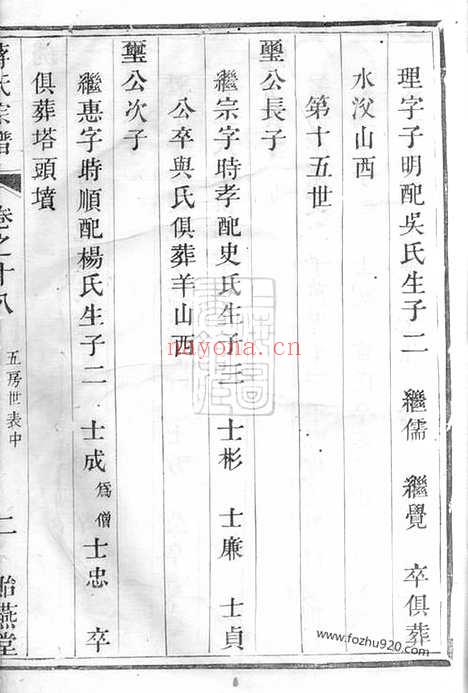 理字子明配吳氏生子二 繼儒 繼覺 卒俱葬
水汶山西
第十五世
璽公長子
繼宗字時孝配史氏生子三 士彬 士廉 士貞
公卒與氏俱葬羊山西
璽公次子
繼惠字時順配楊氏生子二 士成為僧 士忠 卒
俱葬塔頭墳
蔣氏宗譜 卷之十八 五房世表中 二 貽燕堂
nayona.cn
www.fozhu920.com